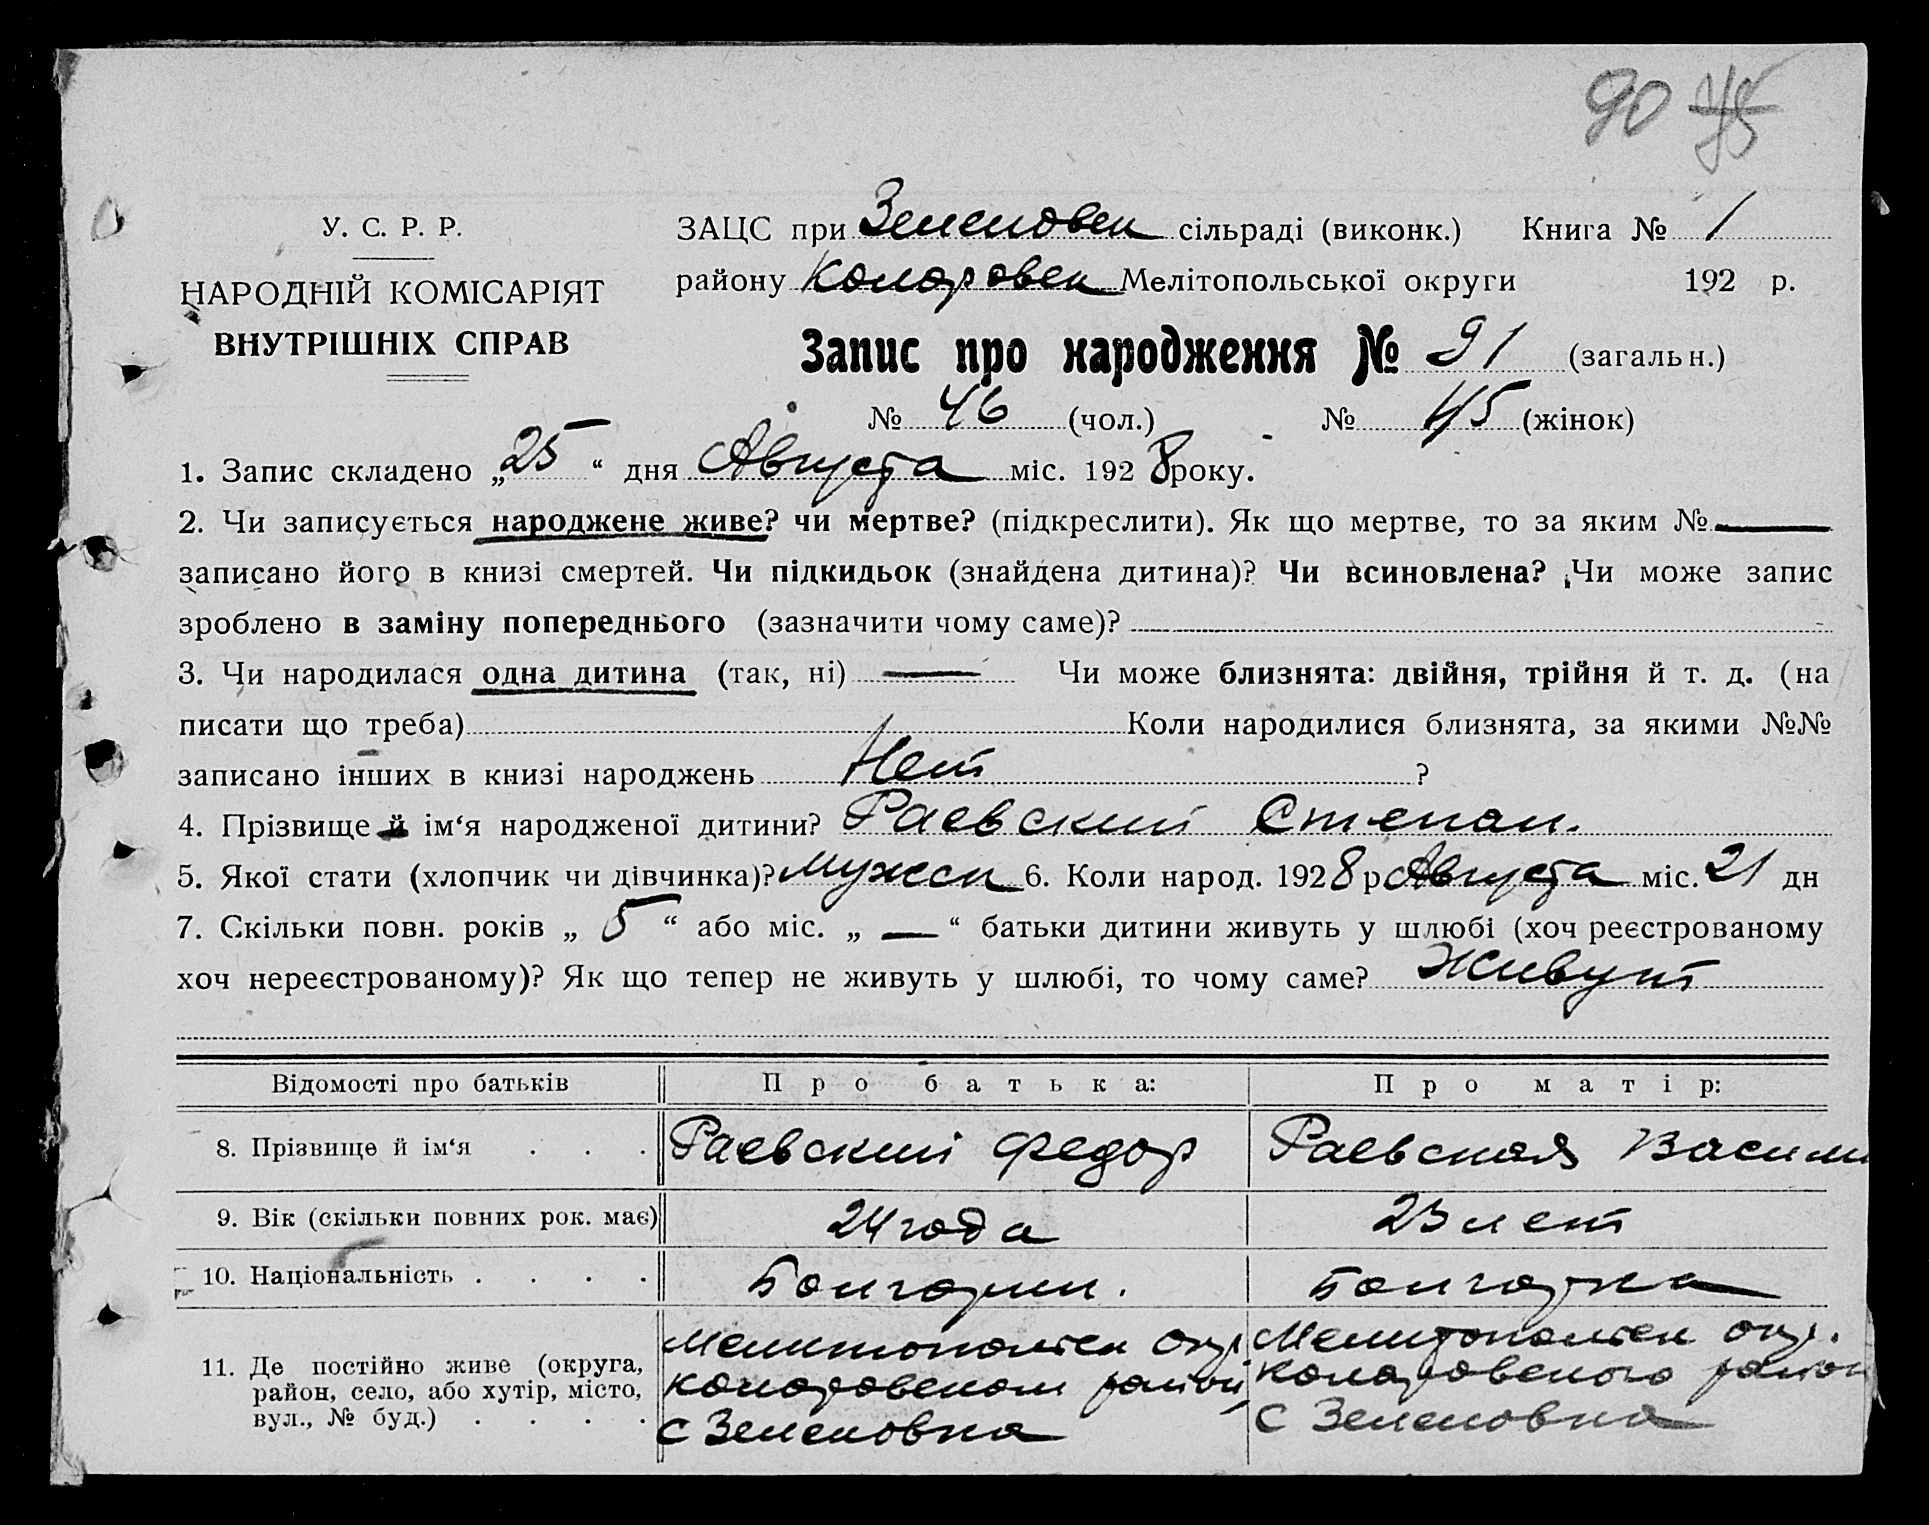 90 45
У. С. Р. Р.
НАРОДНІЙ КОМІСАРІЯТ
ВНУТРІШНІХ СПРАВ
ЗАЦС при Зеленовск сільраді (виконк.) Книга № 1
району Коларовск Мелітопольської округи 192 р.
Запис про народження № 91 (загальн.)
№ 46 (чол.) № 45 (жінок)
1. Запис складено „25“ дня Августа міс. 1928 року.
2. Чи записується народжене живе? чи мертве? (підкреслити). Як що мертве, то за яким № —
записано його в книзі смертей. Чи підкидьок (знайдена дитина)? Чи всиновлена? Чи може запис
зроблено в заміну попереднього (зазначити чому саме)?
3. Чи народилася одна дитина (так, ні) — Чи може близнята: двійня, трійня й т. д. (на
писати що треба) Коли народилися близнята, за якими №№
записано інших в книзі народжень Нет ?
4. Прізвище й ім‘я народженої дитини? Раевский Степан.
5. Якої стати (хлопчик чи дівчинка)? мужск 6. Коли народ. 1928 р Августа міс. 21 дн
7. Скільки повн. років „5“ або міс. „—“ батьки дитини живуть у шлюбі (хоч реєстрованому
хоч нереєстрованому)? Як що тепер не живуть у шлюбі, то чому саме? Живут
Відомості про батьків Про батька: Про матір:
8. Прізвище й ім‘я . . . Раевский Федор Раевская Васили
9. Вік (скільки повних рок. має) 24 года 23 лет
10. Національність . . . . Болгарин. Болгарка
11. Де постійно живе (округа, район, село, або хутір, місто, вул., № буд.) . . . .
Мелитопольск окр
Коларовском район
с Зеленовка
Мелитопольск окр.
Коларовского район
с Зеленовка